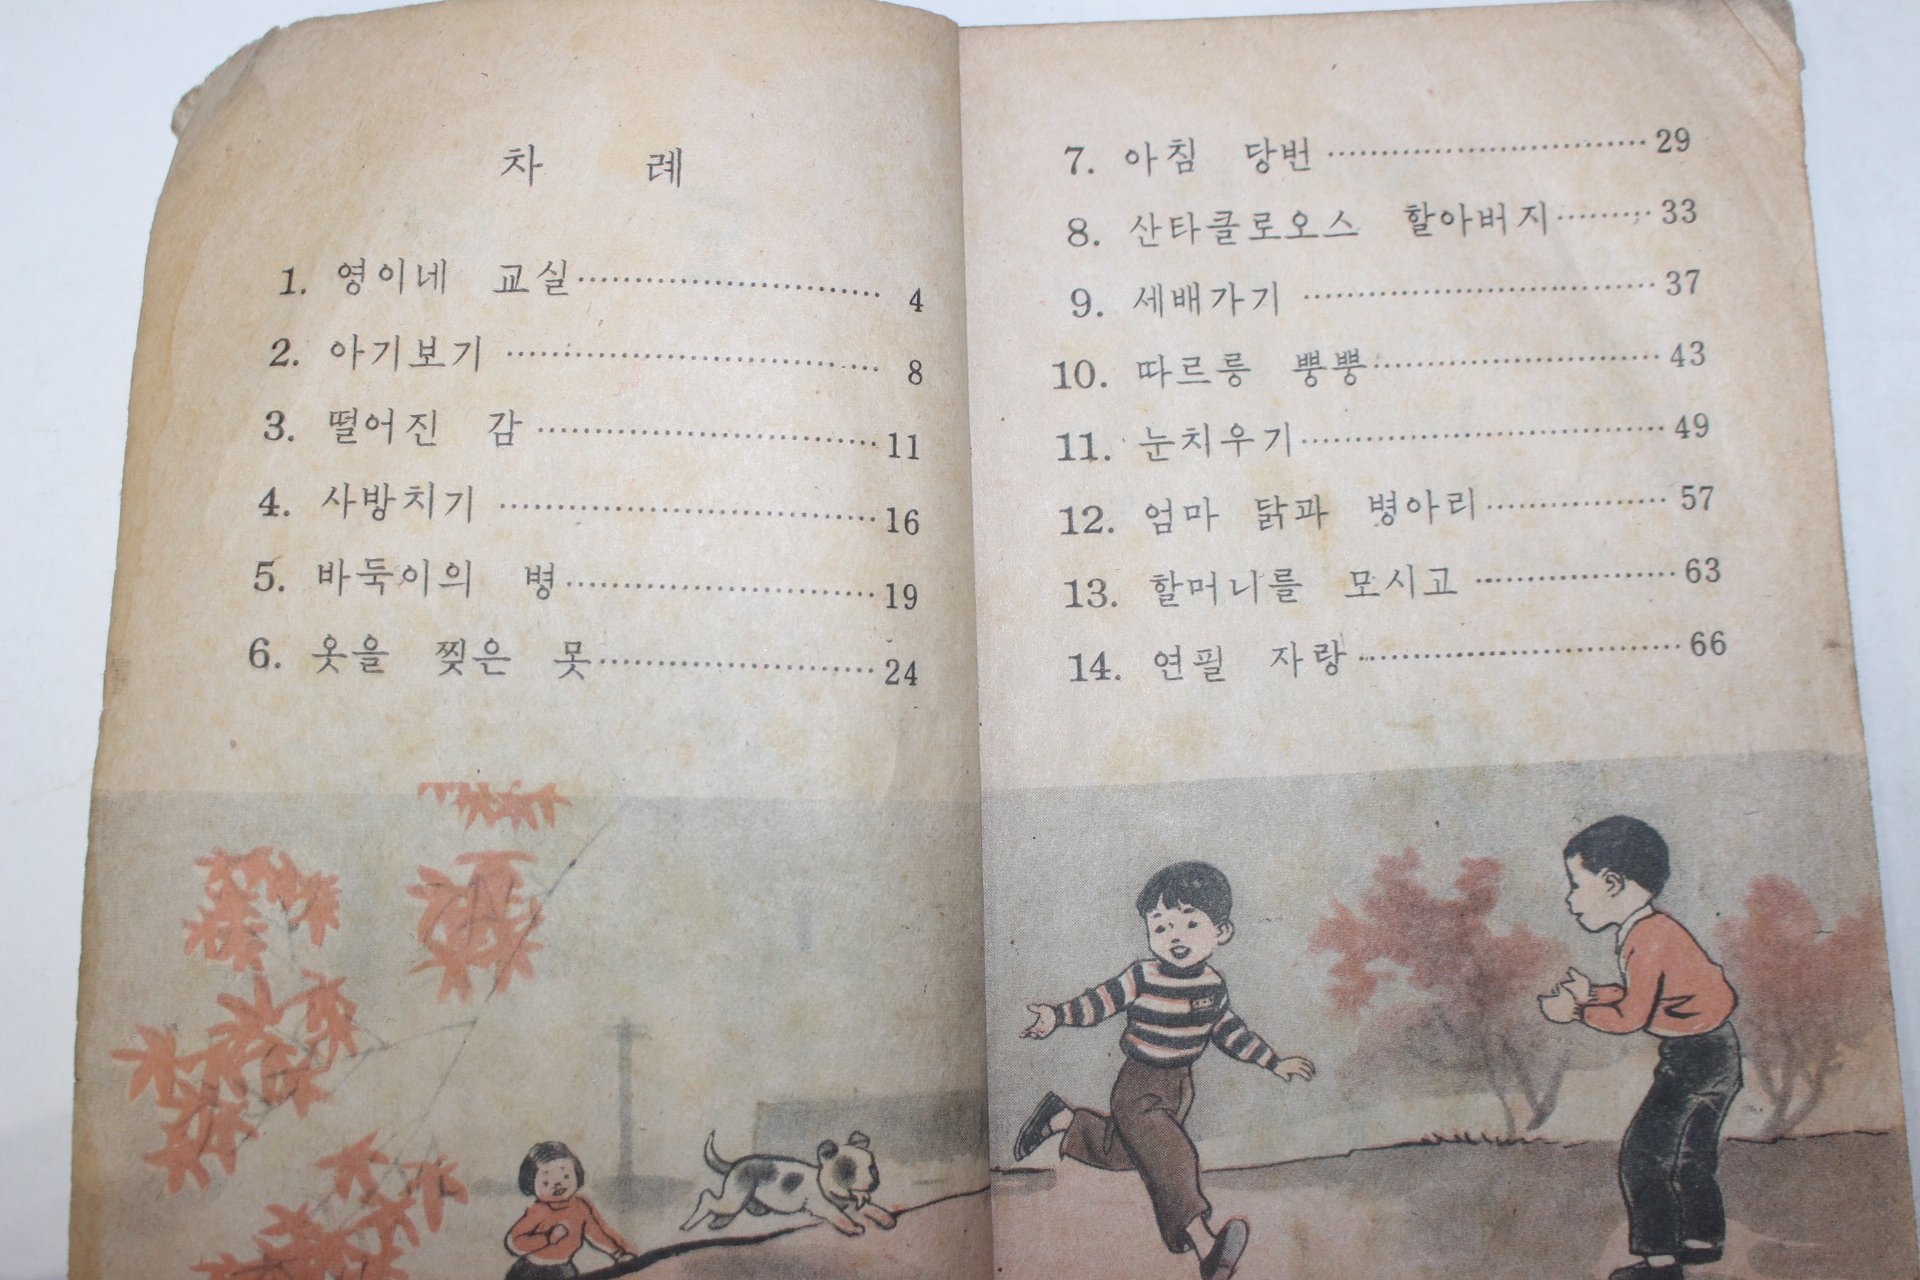 차 례
1. 영이네 교실 4
2. 아기보기 8
3. 떨어진 감 11
4. 사방치기 16
5. 바둑이의 병 19
6. 옷을 찢은 못 24
7. 아침 당번 29
8. 산타클로오스 할아버지 33
9. 세배가기 37
10. 따르릉 뿡뿡 43
11. 눈치우기 49
12. 엄마 닭과 병아리 57
13. 할머니를 모시고 63
14. 연필 자랑 66